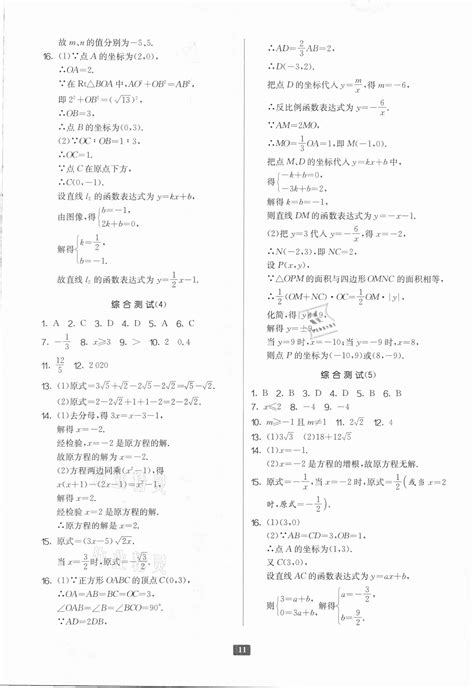 故 m,n 的值分别为-5,5.
16. (1)∵点 A 的坐标为(2,0),
∴OA=2.
∵在 Rt△BOA 中,AO²+OB²=AB²,
即 2²+OB²=(√13)².
∴OB=3,
∴点 B 的坐标为(0,3).
(2)∵OC:OB=1:3,
∴OC=1.
∵点 C 在原点下方,
∴C(0,-1).
设直线 l₂ 的函数表达式为 y=kx+b,
由图像,得{b=-1, 2k+b=0,
解得{k=1/2, b=-1.
故直线 l₂ 的函数表达式为 y=1/2x-1.
综合测试(4)
1. A 2. C 3. D 4. D 5. A 6. C
7. -1/3 8. x⩾3 9. > 10. 2 0.4
11. 12/5 12. 2 020
13. (1)原式=3√5+√2-2√5=√2+√5.
(2)原式=2-2√2+1+1-2=2-2√2.
14. (1)去分母,得 3x=x-3-1,
解得 x=-2.
经检验,x=-2 是原方程的解.
故原方程的解为 x=-2.
(2)方程两边同乘(x²-1),得
x(x+1)-(2x-1)=x²-1,
解得 x=2.
经检验,x=2 是原方程的解.
∴原方程的解是 x=2.
15. 原式=(3x-5)√2x.
当 x=3/2时,原式=-√3/2.
16. (1)∵正方形 OABC 的顶点 C(0,3),
∴OA=AB=BC=OC=3,
∠OAB=∠B=∠BCO=90°.
∵AD=2DB,
∴AD=2/3AB=2,
∴D(-3,2).
把点 D 的坐标代入 y=m/x,得 m=-6,
∴反比例函数表达式为 y=-6/x.
∵AM=2MO,
∴MO=1/3OA=1,即 M(-1,0).
把点 M,D 的坐标代入 y=kx+b 中,
得{-k+b=0, -3k+b=2.
解得 k=b=-1,
则直线 DM 的函数表达式为 y=-x-1.
(2)把 y=3 代入 y=-6/x,得 x=-2,
∴N(-2,3),即 NC=2,
设 P(x,y),
∵△OPM 的面积与四边形 OMNC 的面积相等,
∴1/2(OM+NC)·OC=1/2OM·|y|,
化简,得|y|=9,
解得 y=±9,
当 y=9 时,x=-10;当 y=-9 时,x=8,
则点 P 的坐标为(-10,9)或(8,-9).
综合测试(5)
1. B 2. B 3. D 4. C 5. C 6. A
7. x⩽2 8. -4 9. -4
10. m⩾-1 且 m≠1 11. 2√2 12. 4
13. (1)3√3 (2)18+12√5
14. (1)x=-1.
(2)x=-2 是方程的增根,故原方程无解.
15. 原式=a/(a-2),当 a=-1 时,原式=1/3(或当 a=2
时,原式=-1/3).
16. (1)(3,0)
(2)∵AB=CD=3,OB=1,
∴点 A 的坐标为(1,3).
又 C(3,0),
设直线 AC 的函数表达式为 y=ax+b,
则{3=a+b, 0=3a+b, 解得{a=-3/2, b=9/2.
11